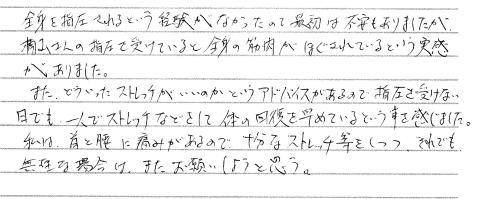 全身を指圧されるという経験がなかったので最初は不安もありましたが、
さんの指圧を受けていると全身の筋肉がほぐされているという実感
がありました。
また、どういったストレッチがいいのかというアドバイスがあるので指圧を受けない
日でも、一人でストレッチなどをして体の回復を早めているという事を感じました。
私は、首と腰に痛みがあるので十分なストレッチ等をしつつ、それでも
無理な場合は、またお願いしようと思う。